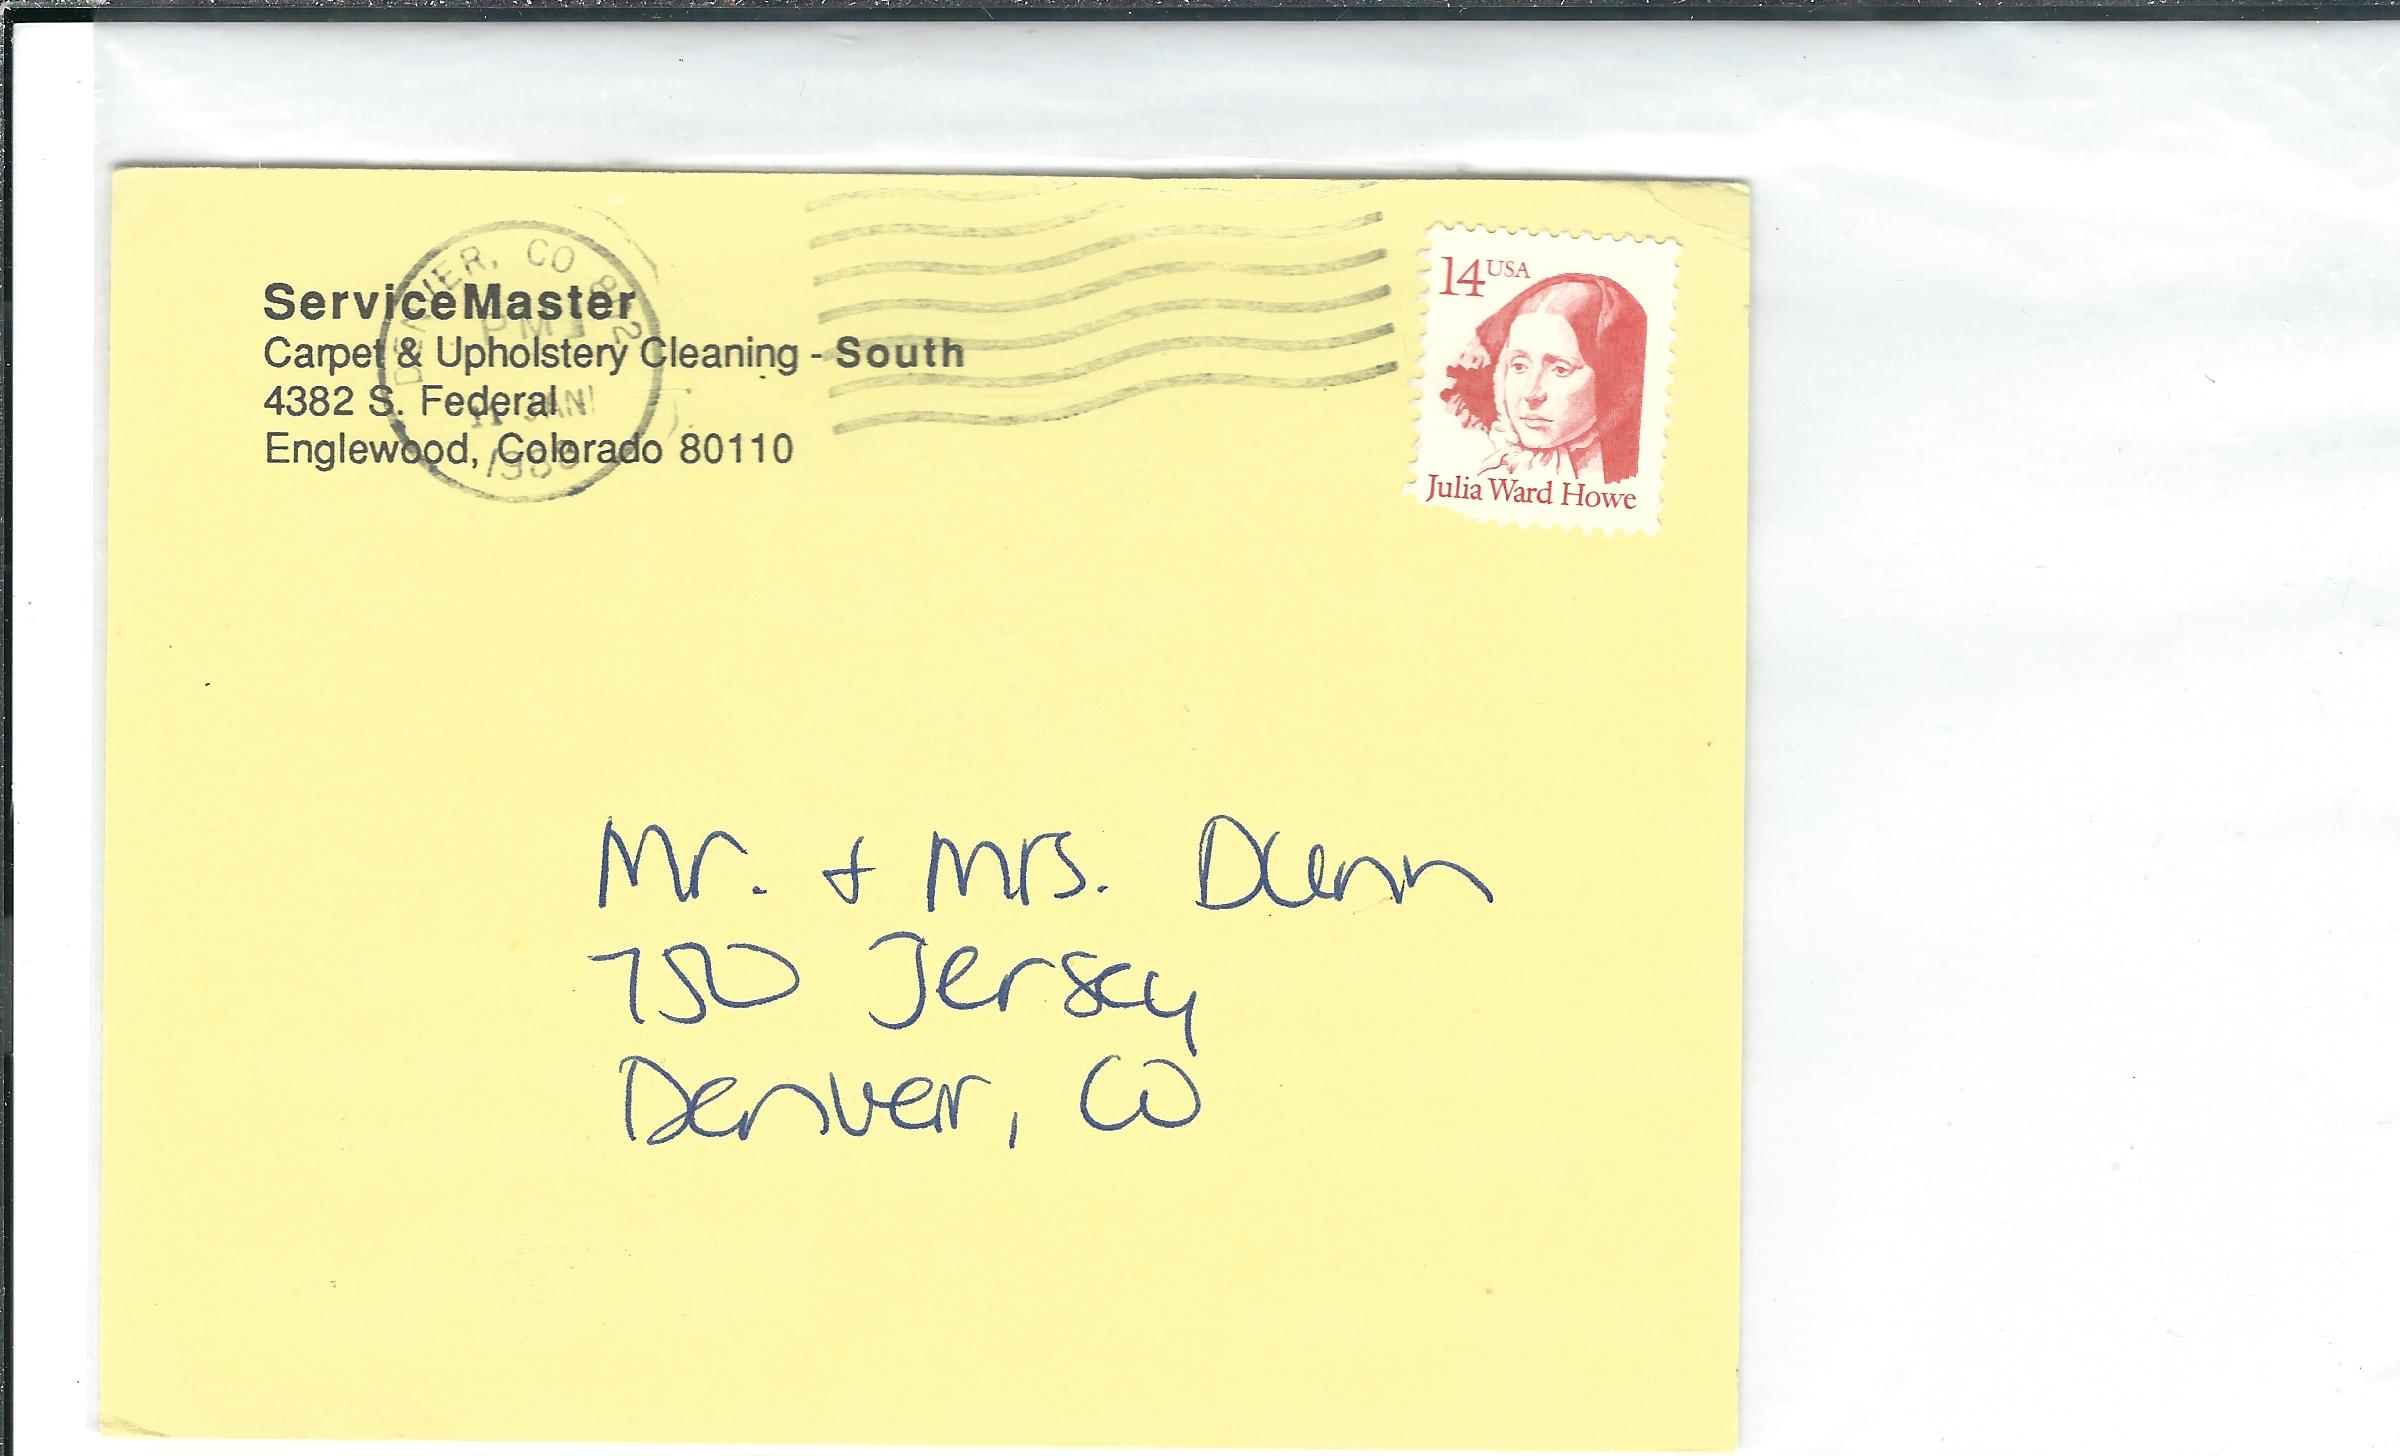 ServiceMaster
Carpet & Upholstery Cleaning - South
4382 S. Federal
Englewood, Colorado 80110
DENVER, CO 802
PM
11 JAN
14 USA
Julia Ward Howe
Mr. + Mrs. Dunn
750 Jersey
Denver, CO